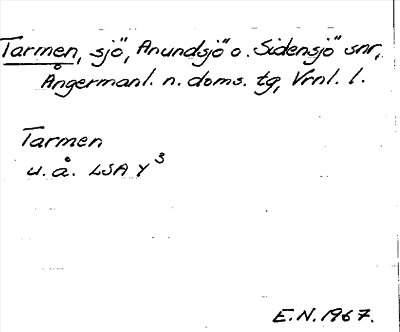 Tarmen, sjö, Anundsjö o. Sidensjö snr,
Ångermanl. n. doms. tg, Vrnl. l.
Tarmen
u.å. LSA Y³
E.N. 1967.